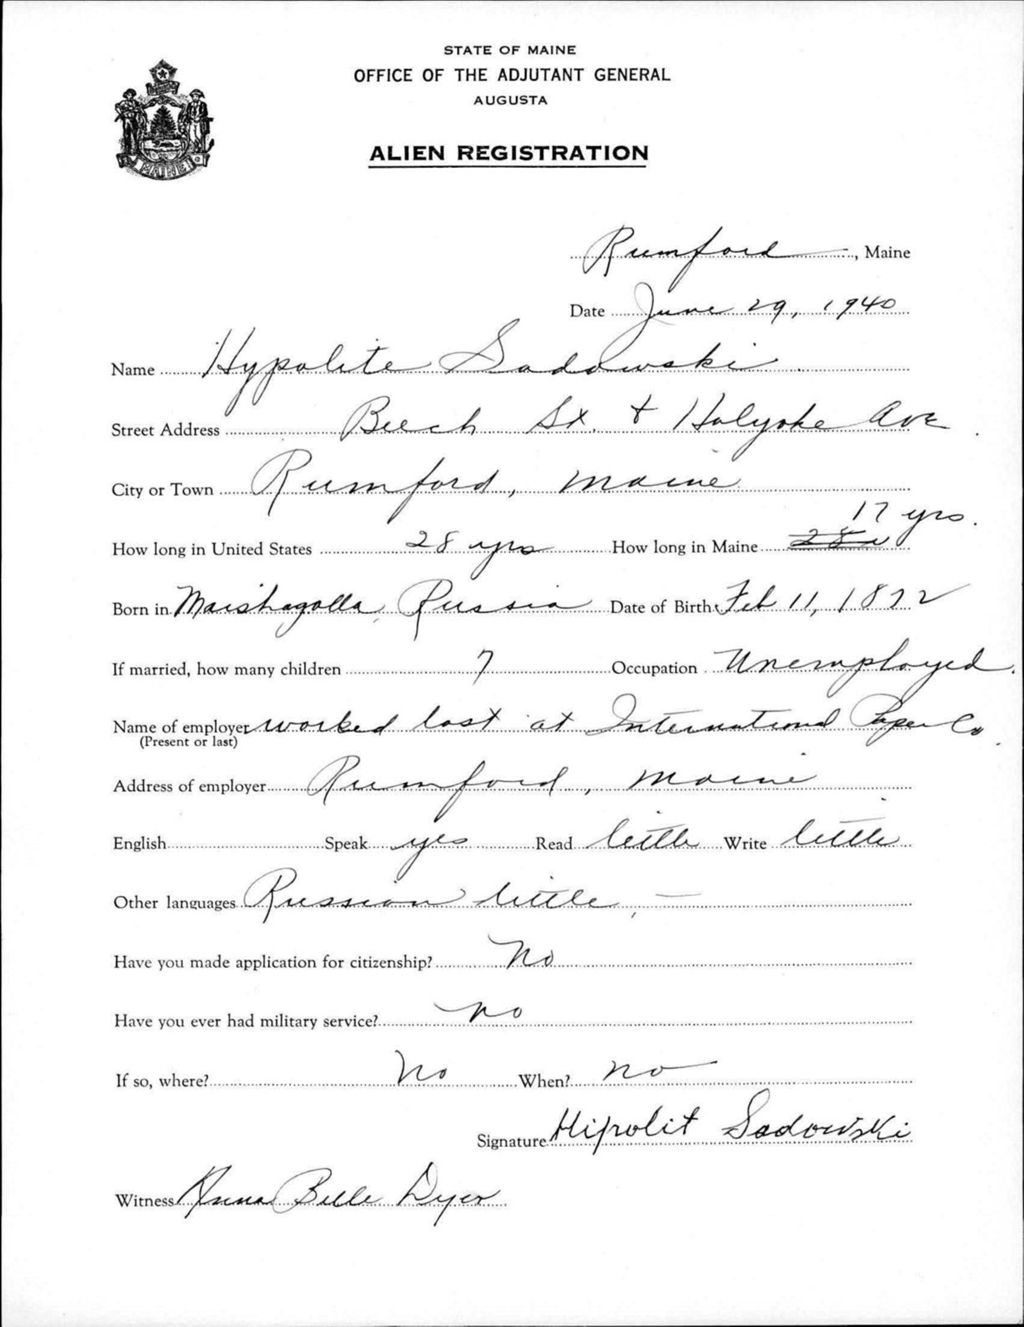 STATE OF MAINE
OFFICE OF THE ADJUTANT GENERAL
AUGUSTA
ALIEN REGISTRATION
Rumford, Maine
Date June 29, 1940
Name Hypolite Sadowski
Street Address Beech St. & Holyoke Ave
City or Town Rumford, Maine
17 yrs.
How long in United States 28 yrs How long in Maine 28
Born in Maishagolla, Russia Date of Birth Feb 11, 1872
If married, how many children 7 Occupation Unemployed.
Name of employer worked last at International Paper Co.
(Present or last)
Address of employer Rumford, Maine
English Speak yes Read little Write little
Other languages Russian little, —
Have you made application for citizenship? No
Have you ever had military service? no
If so, where? No When? no
Signature Hipolit Sadowski
Witness Anna Belle Dyer